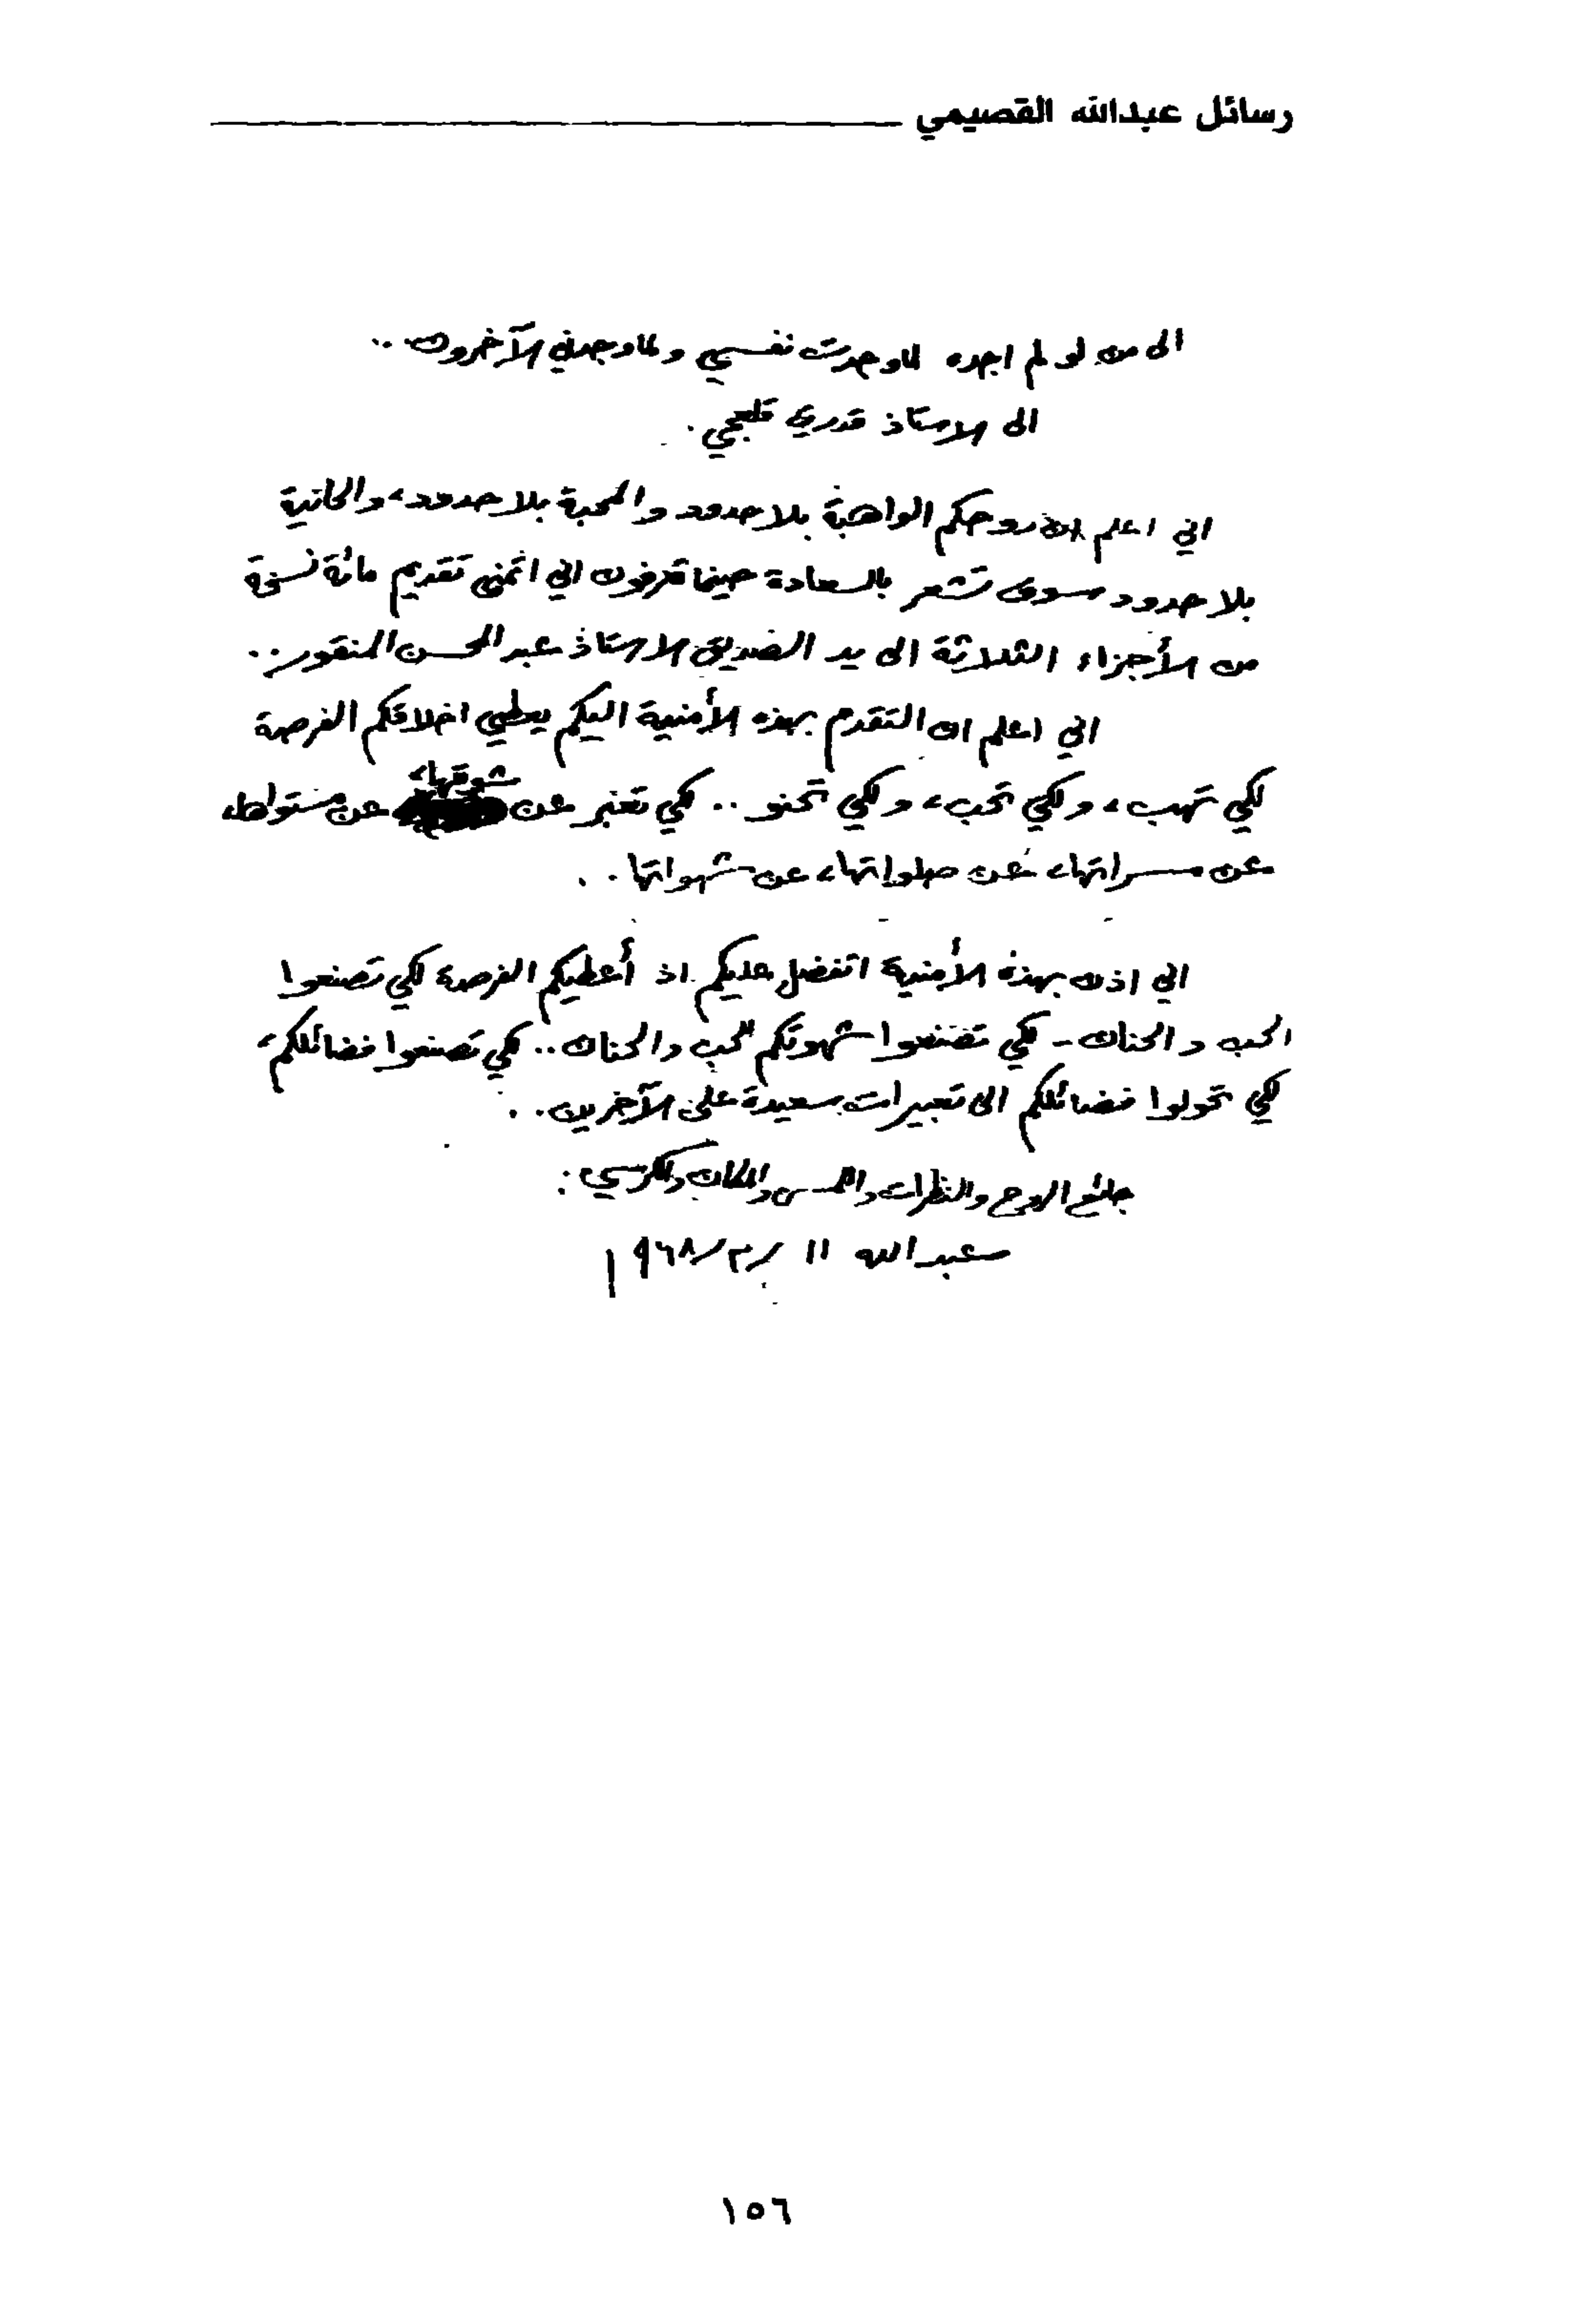 رسائل عبدالله القصيمي
الى من لو لم اجده لما وجدت نفسي ولما وجدني الآخرون ..
الى الاستاذ قدري قلعجي .
اني اعلم ان روحكم الواهبة بلا حدود والمحبة بلا حدود، والحانية
بلا حدود سوف تشعر بالسعادة حينما تعرفون اني اتمنى تقديم مائة نسخة
من الأجزاء الثلاثة الى يد الصديق الاستاذ عبد المحسن المنقور ..
اني اعلم ان التقدم بهذه الأمنية اليكم يعطي اخلاقكم الفرصة
لكي تهب، ولكي تحب، ولكي تحنو .. لكي تعبر عن شوقها، عن مستواها،
عن مسراتها، عن صلواتها، عن شهواتها ..
اني اذن بهذه الأمنية اتفضل عليكم اذ أعطيكم الفرصة لكي تصنعوا
الحب والحنان - لكي تصنعوا شهوتكم للحب والحنان .. لكي تصنعوا فضائلكم،
لكي تحولوا فضائلكم الى تعبيرات سعيدة على الآخرين ..
جائع الروح والنظرات واللمس والمكان والكرسي :
عبدالله ١١ /٣/ ١٩٦٨
١٥٦